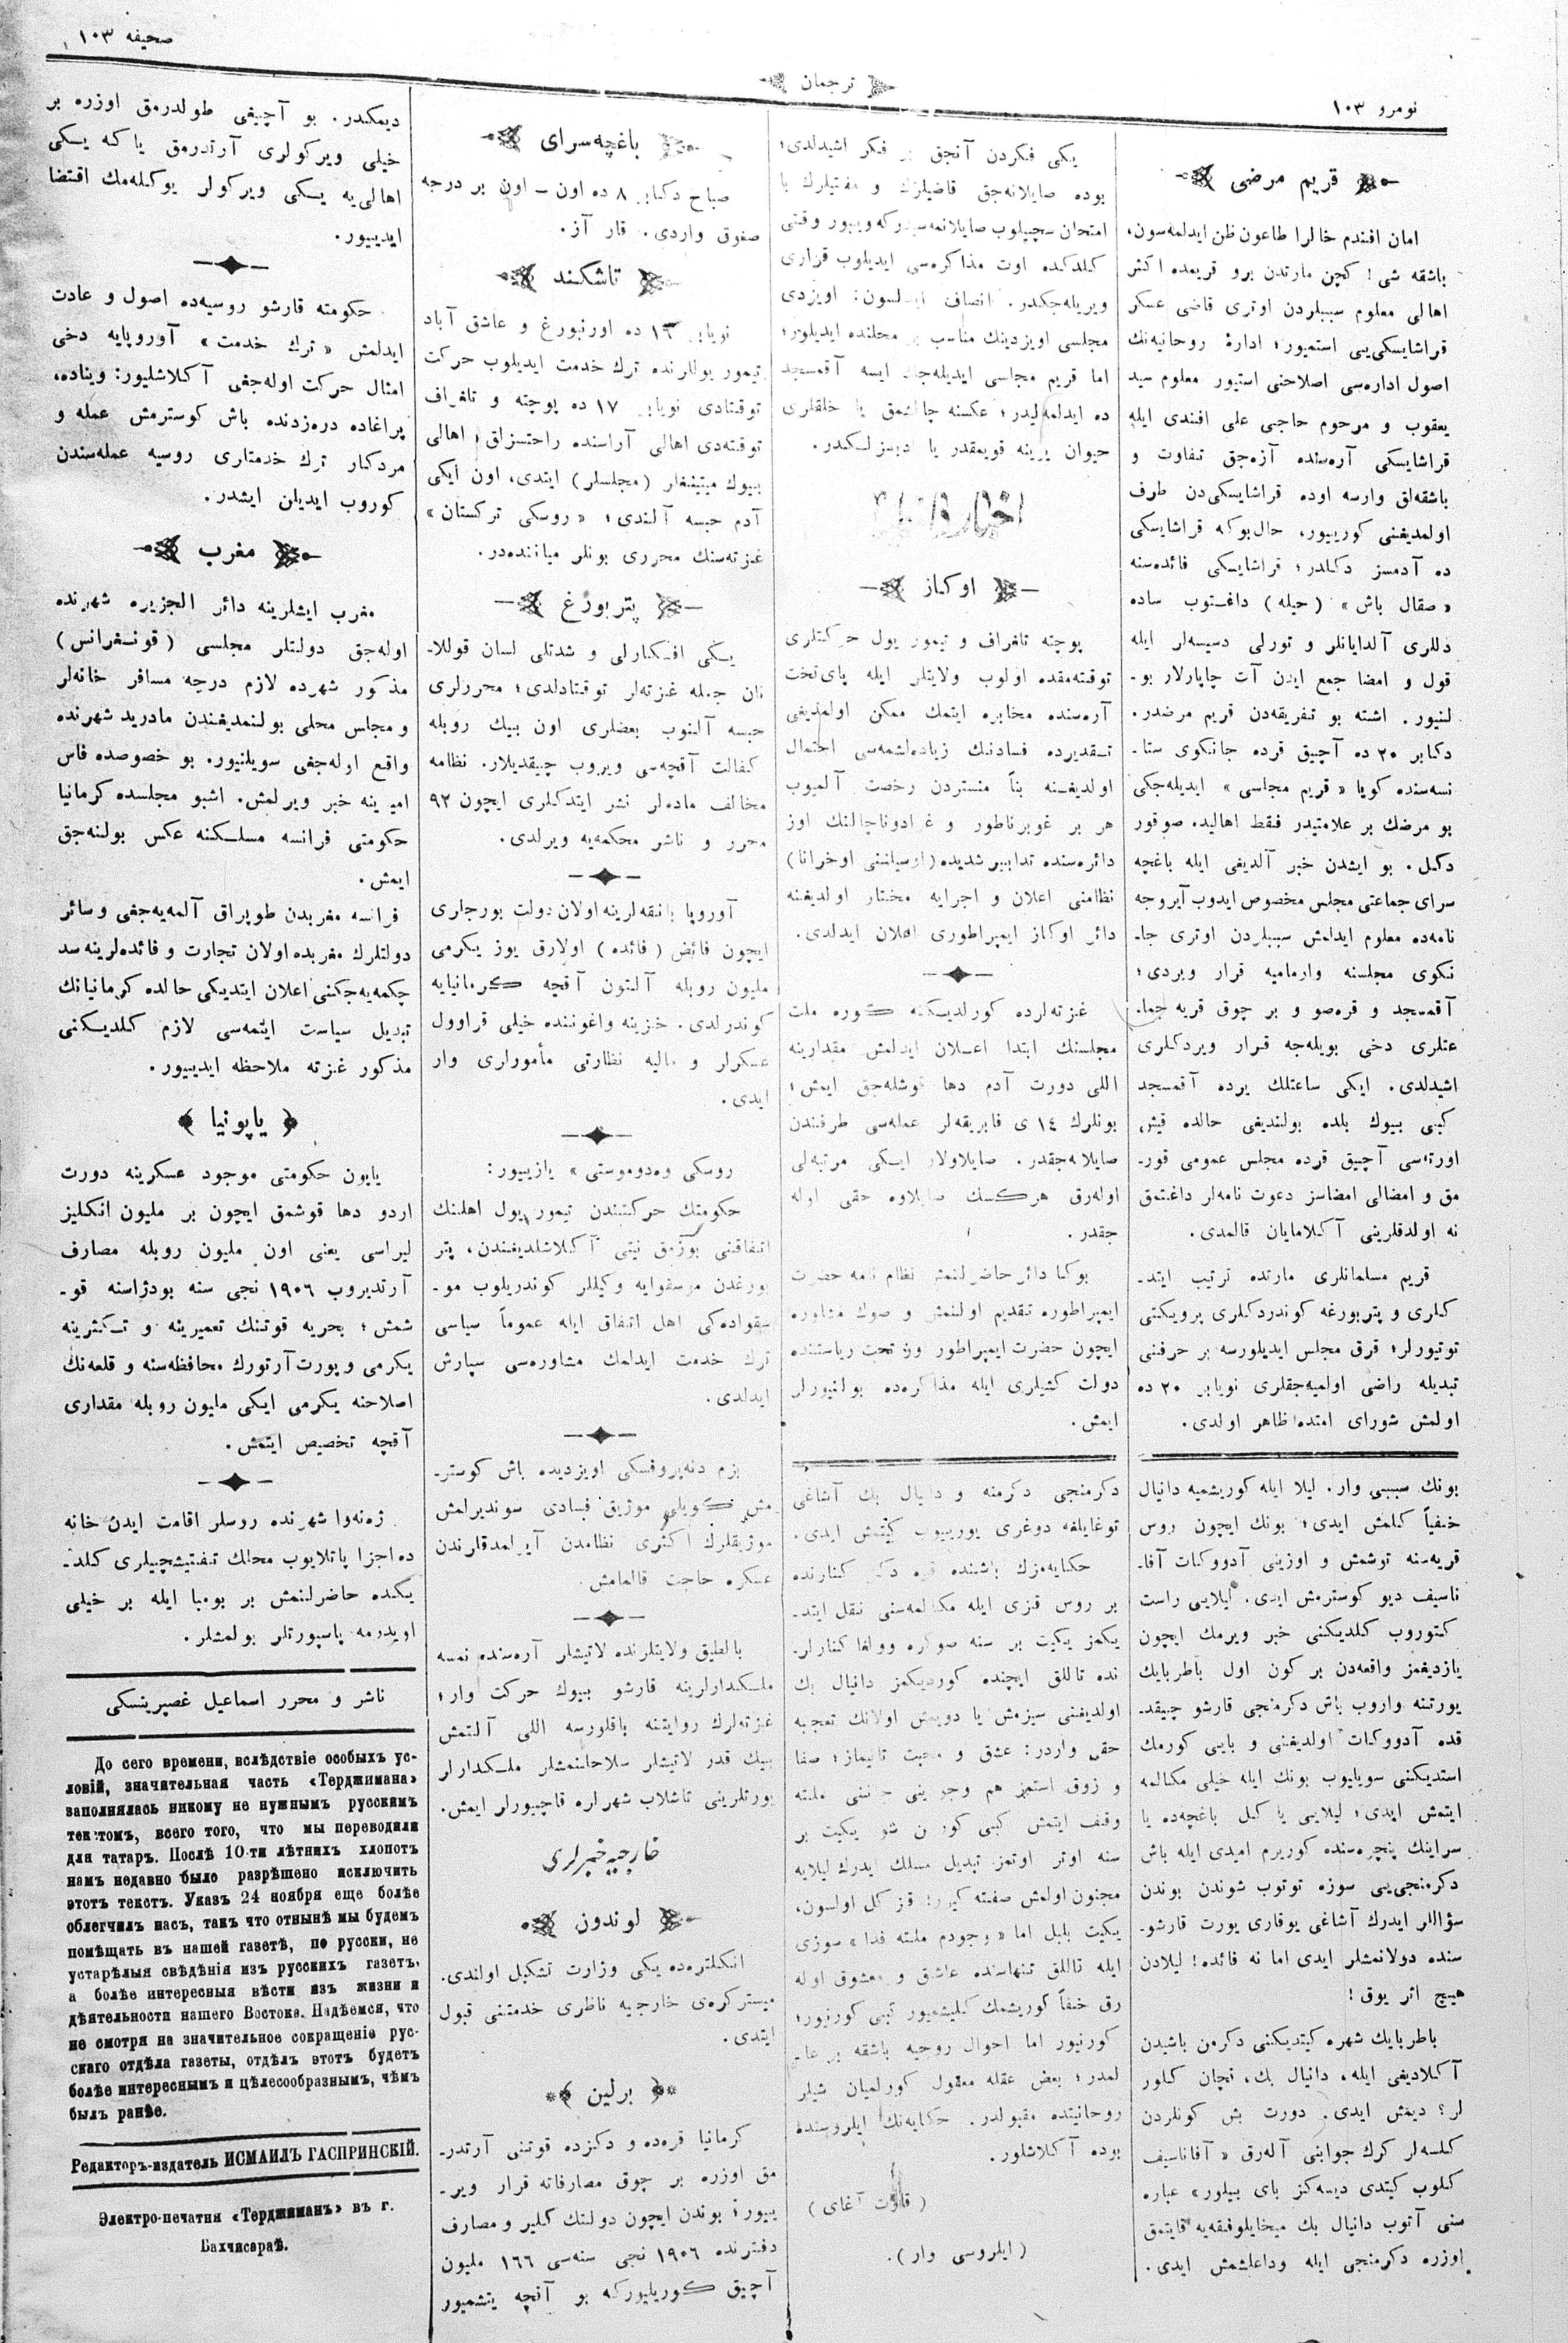 نومرو ١٠٣
ترجمان
صحیفه ١٠٣
قریم مرضی
امان افندم خالرا طاعون ظن ایدلمه‌سون،
باشقه شی! کچن مارتدن برو قریمده اکثر
اهالی معلوم سببلردن اوتری قاضی عسکر
قراشایسکی‌یی استمیور؛ ادارۀ روحانیه‌نك
اصول اداره‌سی اصلاحنی استیور معلوم سید
یعقوب و مرحوم حاجی علی افندی ایله
قراشایسکی آره‌سنده آزه‌جق تفاوت و
باشقه‌لق وارسه اوده قراشایسکی‌دن طرف
اولمدیغنی کوریبور، حال‌بوکه قراشایسکی
ده آدمسز دکلدر؛ قراشایسکی فائده‌سنه
« صقال باش » (حیله) داغتوب ساده
دللری آلدایانلر و تورلی دسیسه‌لر ایله
قول و امضا جمع ایدن آت چاپارلار بو-
لنیور. اشته بو تفریقه‌دن قریم مرضدر.
دکابر ٢٠ ده آچیق قرده جانکوی ستا-
نسه‌سنده کویا « قریم مجلسی » ایدیله‌جکی
بو مرضك بر علامتیدر فقط اهالیده صوقور
دکل. بو ایشدن خبر آلدیغی ایله باغچه
سرای جماعتی مجلس مخصوص ایدوب آیروجه
نامه‌ده معلوم ایدلمش سببلردن اوتری جا-
نکوی مجلسنه وارمامیه قرار ویردی؛
آقمسجد و قره‌صو و بر چوق قریه جما-
عتلری دخی بویله‌جه قرار ویردکلری
اشیدلدی. ایکی ساعتلك یرده آقمسجد
کبی بیوك بلده بولندیغی حالده قیش
اورته‌سی آچیق قرده مجلس عمومی قور-
مق و امضالی امضاسز دعوت نامه‌لر داغتمق
نه اولدقلرینی آکلامایان قالمدی.
قریم مسلمانلری مارتده ترتیب ایتد-
کلری و پتربورغه کوندردکلری پرویکتی
توتیورلر؛ قرق مجلس ایدیلورسه بر حرفنی
تبدیله راضی اولمیه‌جقلری نویابر ٢٠ ده
اولمش شورای امتده ظاهر اولدی.
بونك سببی وار. لیلا ایله کوریشمیه دانیال
خفیاً کلمش ایدی؛ بونك ایچون روس
قریه‌سنه توشمش و اوزینی آدووکات آفا-
ناسیف دیو کوسترمش ایدی. لیلایی راست
کتوروب کلدیکنی خبر ویرمك ایچون
یازدیغمز واقعه‌دن بر کون اول باطربایك
یورتنه واروب باش دکرمنجی قارشو چیقد-
قده آدووکات اولدیغنی و بایی کورمك
استدیکنی سویلیوب بونك ایله خیلی مکالمه
ایتمش ایدی؛ لیلایی یا کل باغچه‌ده یا
سراینك پنجره‌سنده کوریرم امیدی ایله باش
دکرمنجی‌یی سوزه توتوب شوندن بوندن
سؤاللر ایدرك آشاغی یوقاری یورت قارشو-
سنده دولانمشلر ایدی اما نه فائده! لیلادن
هیچ اثر یوق!
باطربایك شهره کیتدیکنی دکرمن باشیدن
آکلادیغی ایله، دانیال بك، نچان کلور
لر؟ دیمش ایدی. دورت بش کونلردن
کلسه‌لر کرك جوابنی آله‌رق « آفاناسیف
کلوب کیتدی دیسه‌کز بای بیلور» عباره
سنی آتوب دانیال بك میخایلوفقه‌یه قایتمق
اوزره دکرمنجی ایله وداعلشمش ایدی.
یکی فکردن آنجق بر فکر اشیدلدی؛
بوده صایلانه‌جق قاضیلرك و مفتیلرك با
امتحان سچیلوب صایلانمه‌سیدرکه ویبور وقتی
کلدکده اوت مذاکره‌سی ایدیلوب قراری
ویریله‌جکدر. انصاف ایدلسون: اویزدی
مجلسی اویزدینك مناسب بر محلنده ایدیلور؛
اما قریم مجلسی ایدیله‌جك ایسه آقمسجد
ده ایدلمه‌لیدر؛ عکسنه چالشمق یا خلقلری
حیوان یرینه قویمقدر یا دیبزلکدر.
اوکاز
پوچته تلغراف و تیمور یول حرکتلری
توقته‌مقده اولوب ولایتلر ایله پای‌تخت
آره‌سنده مخابره ایتمك ممکن اولمدیغی
تقدیرده فسادنك زیاده‌لشمه‌سی احتمال
اولدیغنه بناً منستردن رخصت آلمیوب
هر بر غوبرناطور و غرادوناچالنك اوز
دائره‌سنده تدابیر شدیده (اوسیلننی اوخرانا)
نظامنی اعلان و اجرایه مختار اولدیغنه
دائر اوکاز ایمپراطوری اعلان ایدلدی.
غزته‌لرده کورلدیکنه کوره ملت
مجلسنك ابتدا اعلان ایدلمش مقدارینه
اللی دورت آدم دها قوشله‌جق ایمش؛
بونلرك ١٤ ی فابریقه‌لر عمله‌سی طرفندن
صایلانه‌جقدر. صایلاولار ایسکی مرتبه‌لی
اوله‌رق هرکسك صایلاوه حقی اوله
جقدر.
بوکا دائر حاضرلنمش نظام نامه حضرت
ایمپراطوره تقدیم اولنمش و صوك مشاوره
ایچون حضرت ایمپراطور ون تحت ریاستنده
دولت کشیلری ایله مذاکره‌ده بولنیورلر
ایمش.
دکرمنجی دکرمنه و دانیال بك آشاغی
توغایلغه دوغری یوریبوب کیتمش ایدی.
حکایه‌مزك باشنده قره دکز کنارنده
بر روس قزی ایله مکالمه‌سنی نقل ایتد-
یکمز یکیت بر سنه صوکره وولغا کنارلر-
نده تاللق ایچنده کوردیکمز دانیال بك
اولدیغنی سیزمش یا دویمش اولانك تعجبه
حقی واردر: عشق و محبت تانیماز؛ صفا
و زوق استمز هم وجودینی جاننی ملته
وقف ایتمش کبی کورنن شو یکیت بر
سنه اوتر اوتمز تبدیل مسلك ایدرك لیلایه
مجنون اولمش صفته کیرر! قز کل اولسون،
یکیت بلبل اما « وجودم ملته فدا » سوزی
ایله تاللق تنهاسنده عاشق و معشوق اوله
رق خفیاً کوریشمك کلیشمیور کبی کورنیور؛
کورنیور اما احوال روحیه باشقه بر عا-
لمدر؛ بعض عقله معقول کورلمیان شیلر
روحانیتده مقبولدر. حکایه‌نك ایلروسنده
بوده آکلاشلور.
(ایلروسی وار).
باغچه‌سرای
صباح دکابر ٨ ده اون — اون بر درجه
صغوق واردی. قار آز.
تاشکند
نویابر ١٦ ده اورنبورغ و عاشق آباد
تیمور یوللرنده ترك خدمت ایدیلوب حرکت
توقتادی نویابر ١٧ ده پوچته و تلغراف
توقته‌دی اهالی آراسنده راحتسزلق، اهالی
بیوك میتینغلر (مجلسلر) ایتدی، اون ایکی
آدم حبسه آلندی؛ « روسکی ترکستان »
غزته‌سنك محرری بونلر میاننده‌در.
پتربورغ
یکی افکارلی و شدتلی لسان قوللا-
نان جمله غزته‌لر توقتادلدی؛ محررلری
حبسه آلنوب بعضلری اون بیك روبله
کفالت آقچه‌سی ویروب چیقدیلار. نظامه
مخالف ماده‌لر نشر ایتدکلری ایچون ٩٢
محرر و ناشر محکمه‌یه ویرلدی.
آوروپا بانقه‌لرینه اولان دولت بورجلری
ایچون فائض (فائده) اولارق یوز یکرمی
ملیون روبله آلتون آقچه کرمانیایه
کوندرلدی. خزینه واغوننده خیلی قراوول
عسکرلر و مالیه نظارتی مأمورلری وار
ایدی.
روسکی وه‌دوموستی» یازیبور:
حکومتك حرکتندن تیمور یول اهلنك
اتفاقنی بوزمق نیتی آکلاشلدیغندن، پتر
بورغدن موسقوایه وکیللر کوندریلوب مو-
سقواده‌کی اهل اتفاق ایله عموماً سیاسی
ترك خدمت ایدلمك مشاوره‌سی سپارش
ایدلدی.
بزم دنه‌پروفسکی اویزدیده باش کوستر-
مش کویلی موژیق فسادی سوندیرلمش
موژیقلرك اکثری نظامدن آیرلمدقلرندن
عسکره حاجت قالمامش
بالطیق ولایتلرنده لاتیشلر آره‌سنده نمسه
ملکدارلرینه قارشو بیوك حرکت وار؛
غزته‌لرك روایتنه باقلورسه اللی آلتمش
بیك قدر لاتیشلر سلاحلنمشلر ملکدارلر
یورتلرینی تاشلاب شهرلره قاچیبورلر ایمش.
خارجیه خبرلری
لوندون
انکلتره‌ده یکی وزارت تشکیل اولندی.
میسترکره‌ی خارجیه ناظری خدمتنی قبول
ایتدی.
برلین
کرمانیا قره‌ده و دکزده قوتنی آرتدر-
مق اوزره بر چوق مصارفاته قرار ویر-
ییور؛ بوندن ایچون دولتك کلیر و مصارف
دفترنده ١٩٠٦ نجی سنه‌سی ١٦٦ ملیون
آچیق کوریلیورکه بو آنچه یتشمیور
دیمکدر. بو آچیغی طولدرمق اوزره بر
خیلی ویرکولری آرتدرمق یاکه یکی
اهالی‌یه یکی ویرکولر یوکله‌مك اقتضا
ایدییور.
حکومته قارشو روسیه‌ده اصول و عادت
ایدلمش « ترك خدمت » آوروپایه دخی
امثال حرکت اوله‌جغی آکلاشلیور: ویناده،
پراغاده دره‌زدنده باش کوسترمش عمله و
مردکار ترك خدمتلری روسیه عمله‌سندن
کوروب ایدیلن ایشدر.
مغرب
مغرب ایشلرینه دائر الجزیره شهرنده
اوله‌جق دولتلر مجلسی (قونفرانس)
مذکور شهرده لازم درجه مسافر خانه‌لر
و مجلس محلی بولنمدیغندن مادرید شهرنده
واقع اوله‌جغی سویلنیور. بو خصوصده فاس
امیرینه خبر ویرلمش. اشبو مجلسده کرمانیا
حکومتی فرانسه مسلکنه عکس بولنه‌جق
ایمش.
فرانسه مغربدن طوپراق آلمه‌یه‌جغی وسائر
دولتلرك مغربده اولان تجارت و فائده‌لرینه سد
چکمه‌یه‌جکنی اعلان ایتدیکی حالده کرمانیانك
تبدیل سیاست ایتمه‌سی لازم کلدیکنی
مذکور غزته ملاحظه ایدییور.
﴿ یاپونیا ﴾
یاپون حکومتی موجود عسکرینه دورت
اردو دها قوشمق ایچون بر ملیون انکلیز
لیراسی یعنی اون ملیون روبله مصارف
آرتدیروب ١٩٠٦ نجی سنه بودژاسنه قو-
شمش؛ بحریه قوتنك تعمیرینه و تکثرینه
یکرمی و پورت آرتورك محافظه‌سنه و قلعه‌نك
اصلاحنه یکرمی ایکی ملیون روبله مقداری
آقچه تخصیص ایتمش.
ژه‌نه‌وا شهرنده روسلر اقامت ایدن خانه
ده اجزا پاتلایوب محلك تفتیشچیلری کلد-
یکده حاضرلنمش بر بومبا ایله بر خیلی
اویدرمه پاسپورتلر بولمشلر.
ناشر و محرر اسماعیل غصپرینسکی
До сего времени, вслѣдствіе особыхъ ус-
ловій, значительная часть «Терджимана»
заполнялась никому не нужнымъ русскимъ
текстомъ, всего того, что мы переводили
для татаръ. Послѣ 10-ти лѣтнихъ хлопотъ
намъ недавно было разрѣшено исключить
этотъ текстъ. Указъ 24 ноября еще болѣе
облегчилъ насъ, такъ что отнынѣ мы будемъ
помѣщать въ нашей газетѣ, по русски, не
устарѣлыя свѣдѣнія изъ русскихъ газетъ,
а болѣе интересныя вѣсти изъ жизни и
дѣятельности нашего Востока. Надѣемся, что
не смотря на значительное сокращеніе рус-
скаго отдѣла газеты, отдѣлъ этотъ будетъ
болѣе интереснымъ и цѣлесообразнымъ, чѣмъ
былъ ранѣе.
Редакторъ-издатель ИСМАИЛЪ ГАСПРИНСКІЙ.
Электро-печатня «Терджиманъ» въ г.
Бахчисараѣ.